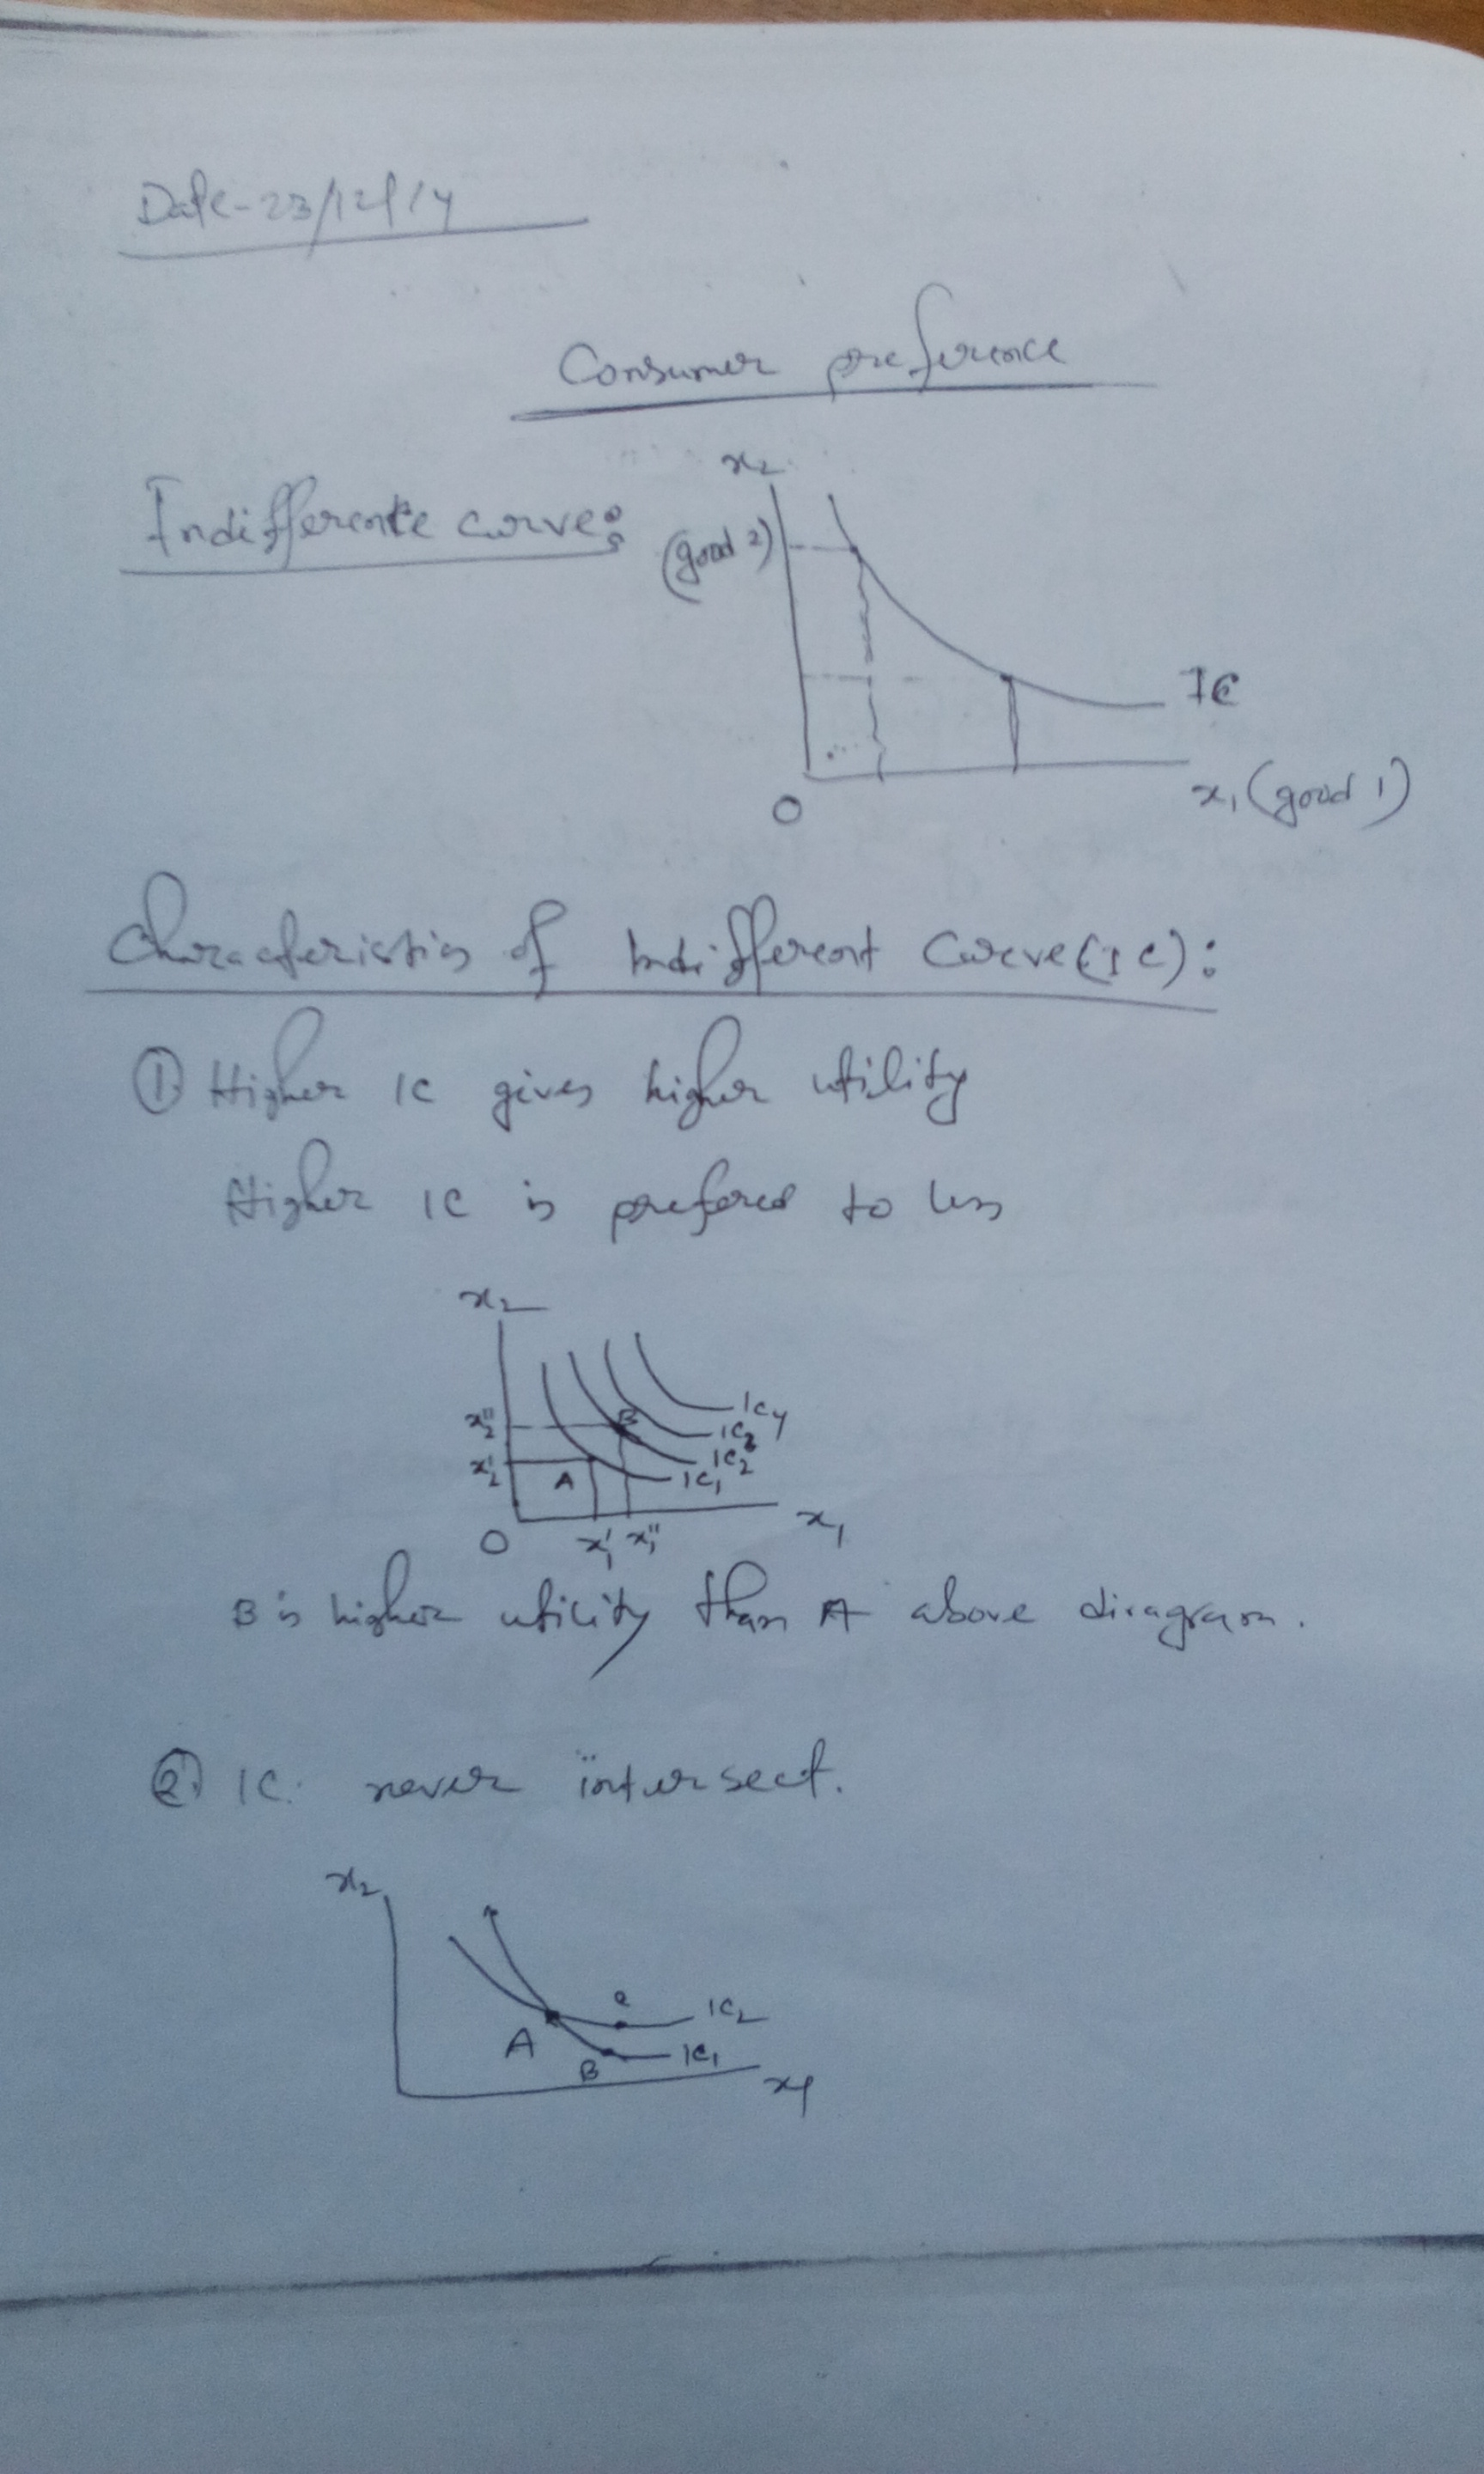 Date-23/12/14
Consumer preference
Indifference curve:
x2
(good 2)
IC
O
x1 (good 1)
Characteristics of Indifferent Curve (IC):
① Higher IC gives higher utility
Higher IC is prefered to less
x2
IC4
x2'' B IC3
x2' IC2
A IC1
O x1' x1'' x1
B is higher utility than A above diragram.
② IC. never intersect.
x2
c IC2
A
B IC1
x1